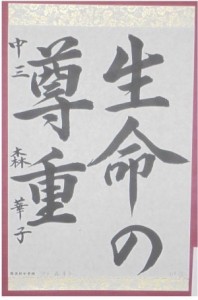 生命の
尊重
中三 森 華子